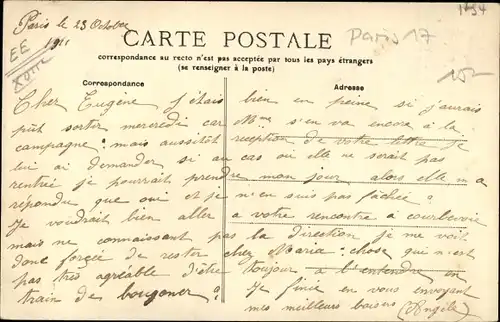 Paris le 23 Octobre
1911
EE
XVIIe
1454
Paris 17
152
CARTE POSTALE
correspondance au recto n'est pas acceptée par tous les pays étrangers
(se renseigner à la poste)
Correspondance
Adresse
Cher Eugène j'étais bien en peine si j'aurais
pût sorter mercredi car Mme s'en va encore à la
campagne : mais aussitôt reception de votre lettre je
lui ai demander si au cas où elle ne serait pas
rentrée je pourrait prendre mon jour alors elle m'a
répondu que oui et je n'en suis pas fâchée !
Je voudrait bien aller a votre rencontre à courbevoie
mais ne connaissant pas la direction je me voit
donc forcée de rester chez Maria chose qui n'est
pas très agréable d'être toujour a l'entendre en
train de bougoner ! Je finie en vous envoyant
mes meilleurs baisers (Angèle)